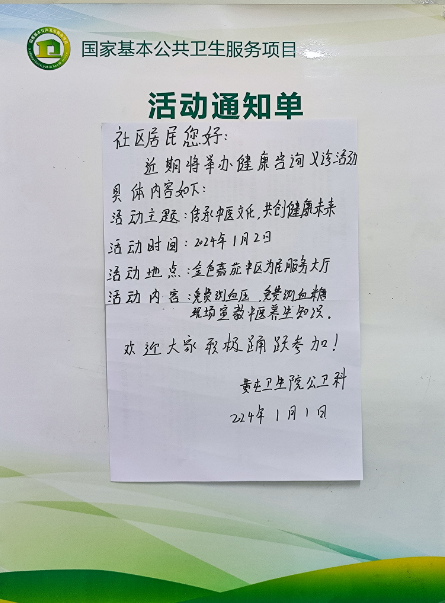 国家基本公共卫生服务项目
活动通知单
社区居民您好:
近期将举办健康咨询义诊活动
具体内容如下:
活动主题:传承中医文化,共创健康未来
活动时间:2024年1月2日
活动地点:金色嘉苑中区为民服务大厅
活动内容:免费测血压、免费测血糖
现场宣教中医养生知识。
欢迎大家积极踊跃参加!
黄屯卫生院公卫科
2024年1月1日